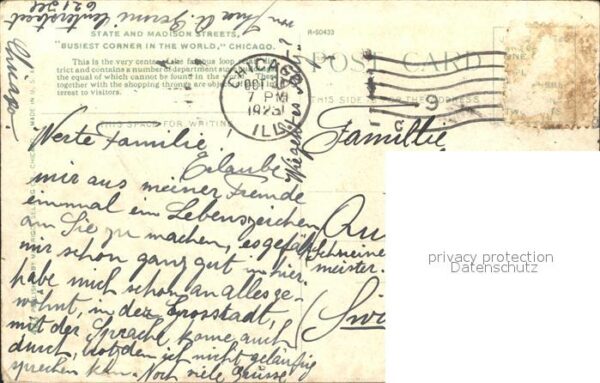 STATE AND MADISON STREETS,
"BUSIEST CORNER IN THE WORLD," CHICAGO.
This is the very center of the famous loop
trict and contains a number of department and
the equal of which cannot be found in the world. These
together with the shopping throngs are objects of
terest to visitors.
R-50433
POST CARD
THIS SIDE FOR THE ADDRESS
THIS SPACE FOR WRITING
CHICAGO
OCT
7 PM
1923
ILL
Chicago
Werte Familie!
Erlaube
mir aus meiner Fremde
einmal ein Lebenszeichen
an Sie zu machen, es gefällt
mir schon ganz gut in hier.
habe mich schon an alles ge-
wöhnt, in der Grosstadt,
mit der Sprache kome auch
durch, trotzdem ich nicht geläufig
sprechen kan. Noch viele Grüsse
Wie geht es
von
Familie
Schreiner
meister.
(Swi
privacy protection
Datenschutz